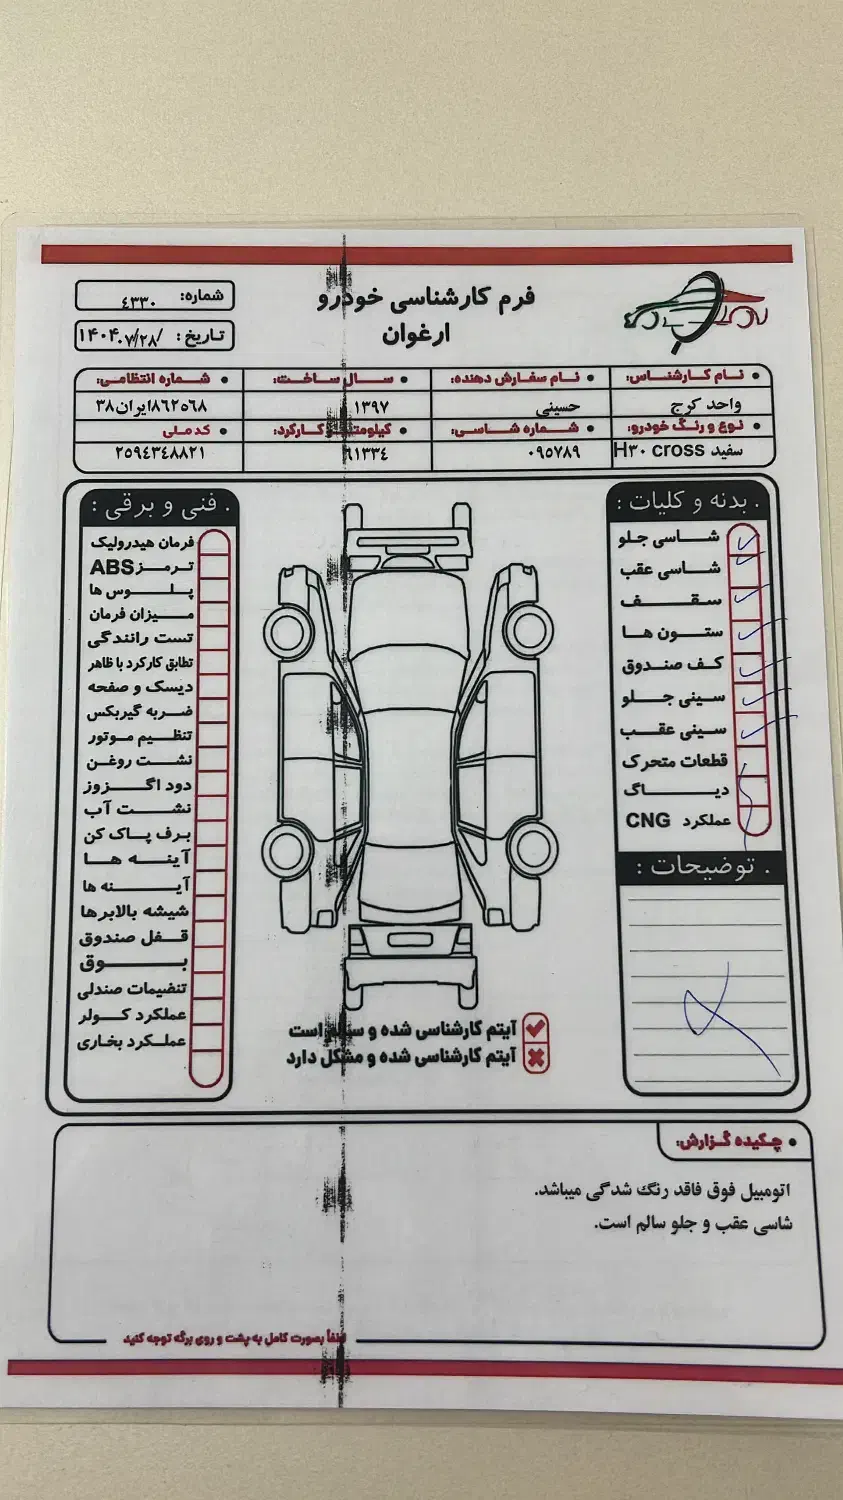 فرم کارشناسی خودرو
ارغوان
شماره: ٤٣٣٠
تاریخ: ۱۴۰۴.۷/۲۸/
• نام کارشناس:
• نام سفارش دهنده:
• سال ساخت:
• شماره انتظامی:
واحد کرج
حسینی
۱۳۹۷
۸۶۲ه۵۶۸ایران۳۸
• نوع و رنگ خودرو:
• شماره شاسی:
• کیلومتر کارکرد:
• کد ملی
سفید H۳۰ cross
۰۹۵۷۸۹
۹۱۳۳٤
۲۵۹٤۳٤۸۸۲۱
. بدنه و کلیات :
شاسی جلو
شاسی عقب
سقف
ستون ها
کف صندوق
سینی جلو
سینی عقب
قطعات متحرک
دیاگ
عملکرد CNG
. توضیحات :
. فنی و برقی :
فرمان هیدرولیک
ترمز ABS
پلوس ها
میزان فرمان
تست رانندگی
تطابق کارکرد با ظاهر
دیسک و صفحه
ضربه گیربکس
تنظیم موتور
نشت روغن
دود اگزوز
نشت آب
برف پاک کن
آینه ها
آینه ها
شیشه بالابرها
قفل صندوق
بوق
تنضیمات صندلی
عملکرد کولر
عملکرد بخاری
آیتم کارشناسی شده و سالم است
آیتم کارشناسی شده و مشکل دارد
• چکیده گزارش:
اتومبیل فوق فاقد رنگ شدگی میباشد.
شاسی عقب و جلو سالم است.
لطفاً بصورت کامل به پشت و روی برگه توجه کنید